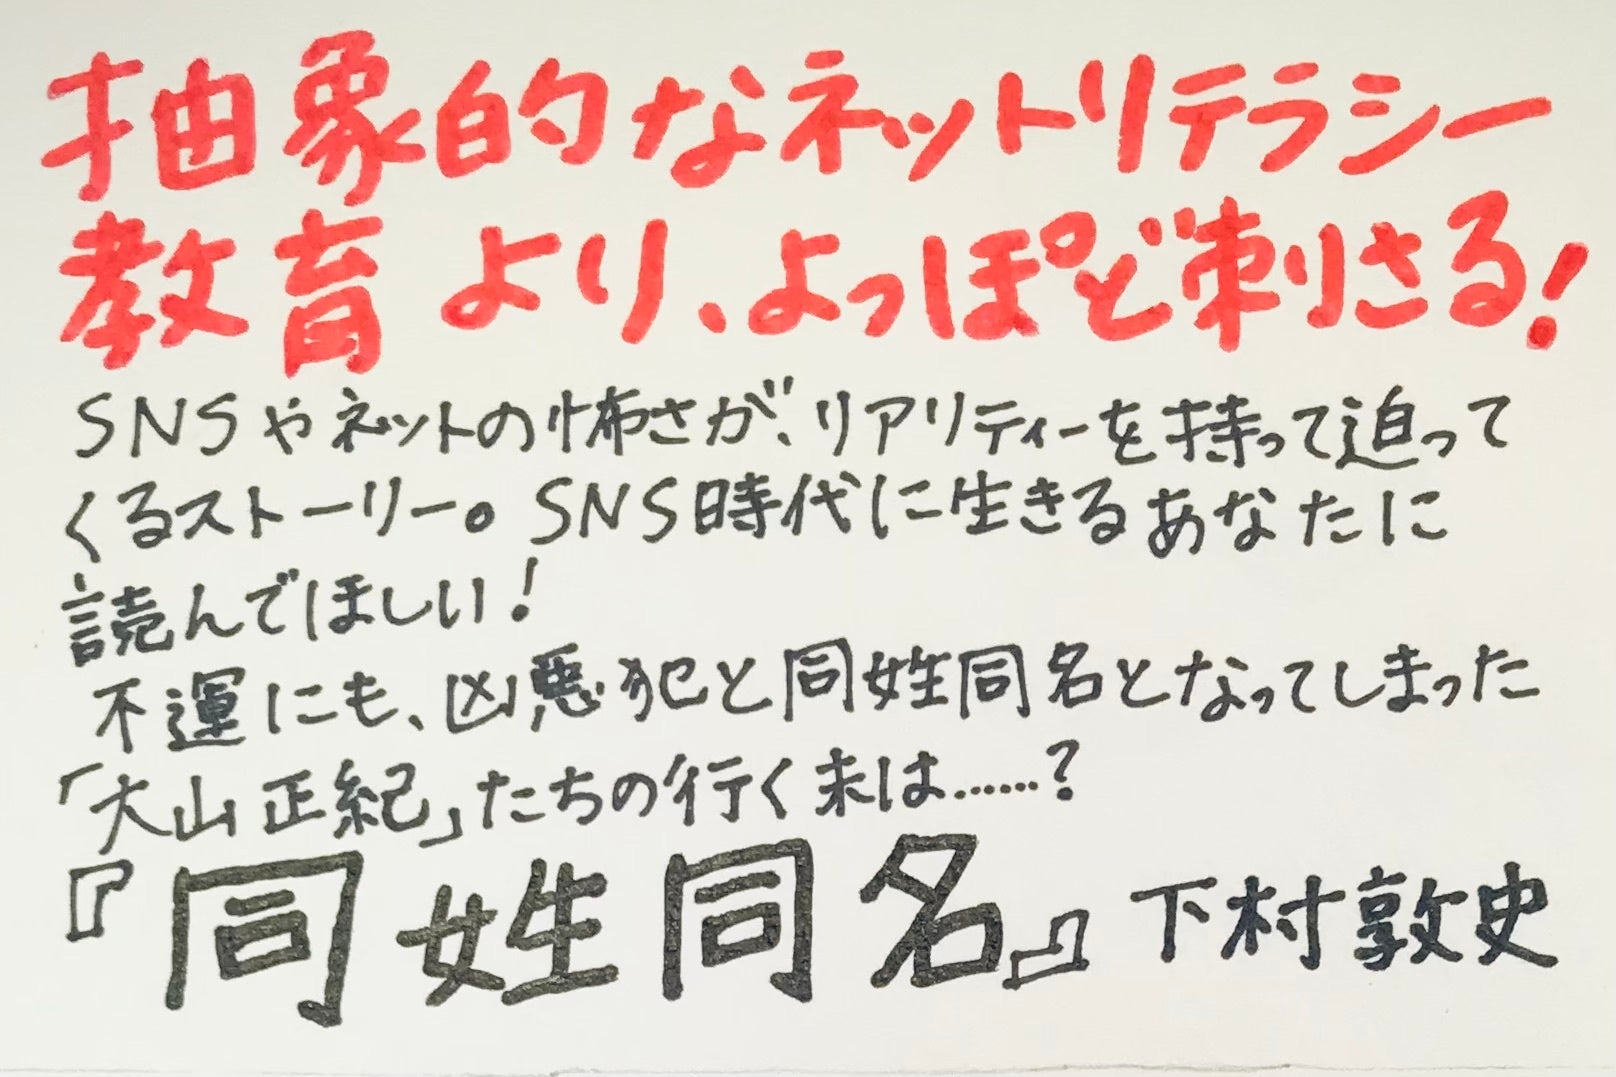 抽象的なネットリテラシー
教育より、よっぽど刺さる!
SNSやネットの怖さが、リアリティーを持って迫って
くるストーリー。SNS時代に生きるあなたに
読んでほしい!
不運にも、凶悪犯と同姓同名となってしまった
「大山正紀」たちの行く末は……?
『同姓同名』下村敦史